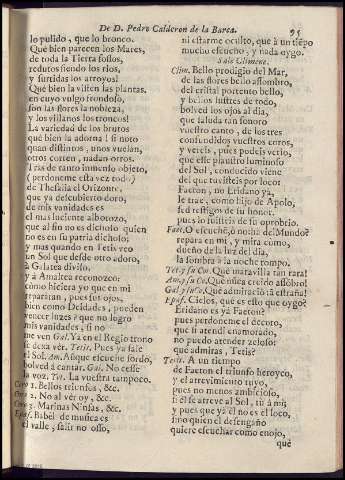 De D. Pedro Calderon de la Barca. 95
lo pulido, que lo bronco.
Què bien parecen los Mares,
de toda la Tierra fossos,
reductos siendo los rios,
y surtidas los arroyos!
Què bien la visten las plantas,
en cuyo vulgo frondoso,
son las flores la nobleza,
y los villanos los troncos!
La variedad de los brutos
què bien la adorna! si noto
quan distintos, unos vuelan,
otros corren, nadan otros.
Iras de tanto inmenso objeto,
(perdoneme esta vez todo)
de Thessalia el Orizonte,
que ya descubierto doro,
de mis vanidades es
el mas luciente alborozo,
que al fin no es dichoso quien
no es en su patria dichoso:
y mas quando en Tetis veo
un Sol que desde otro adoro,
à Galatea diviso,
y à Amaltea reconozco:
còmo hiciera yo que en mi
repararan, pues sus ojos,
bien como Deidades, pueden
vencer luzes? que no logro
mis vanidades, si no
me ven Gal. Ya en el Regio trono
se dexa vèr. Tetis. Pues ya sale
el Sol. Am. Aũque escuche sordo,
bolved à cantar. Gal. No cesse
la voz. Tet. La vuestra tampoco.
Coro 1. Bellos triunfos, &c.
Coro 2. No al vèr oy, &c.
Coro 3. Marinas Ninfas, &c.
Epaf. Babèl de musica es
el valle, salir no osso,
ni estarme oculto, que à un tiẽpo
mucho escucho, y nada oygo.
Sale Climene.
Clim. Bello prodigio del Mar,
de las flores bello assombro,
del cristal portento bello,
y bellos lustres de todo,
bolved los ojos al dia,
que saluda tan sonoro
vuestro canto, de los tres
confundidos vuestros coros,
y vereis, pues podeis verlo,
que esse plaustro luminoso
del Sol, conducido viene
del que tuvisteis por loco:
Faeton, no Eridano ya,
le trae, como hijo de Apolo,
sed testigos de su honor,
pues lo fuisteis de su oprobrio.
Faet. O escuche, ò no la del Mundo?
repara en mi, y mira como,
dueño de la luz del dia,
la sombra à la noche rompo.
Tet. y su Co. Què maravilla tan rara!
Am. y su Co. Què nũca creido assõbro!
Gal. y su Co. Què admiraciõ tã estraña!
Epaf. Cielos, què es esto que oygo?
Eridano es yà Faeton?
pues perdoneme el decoro,
que si atendì enamorado,
no puedo atender zeloso:
què admiras, Tetis?
Tetis. A un tiempo
de Faeton el triunfo heroyco,
y el atrevimiento tuyo,
pues no menos ambicioso,
si èl se atreve al Sol, tu à mi;
y pues que ya èl no es el loco,
sino quien el desengaño
quiere escuchar como enojo,
què